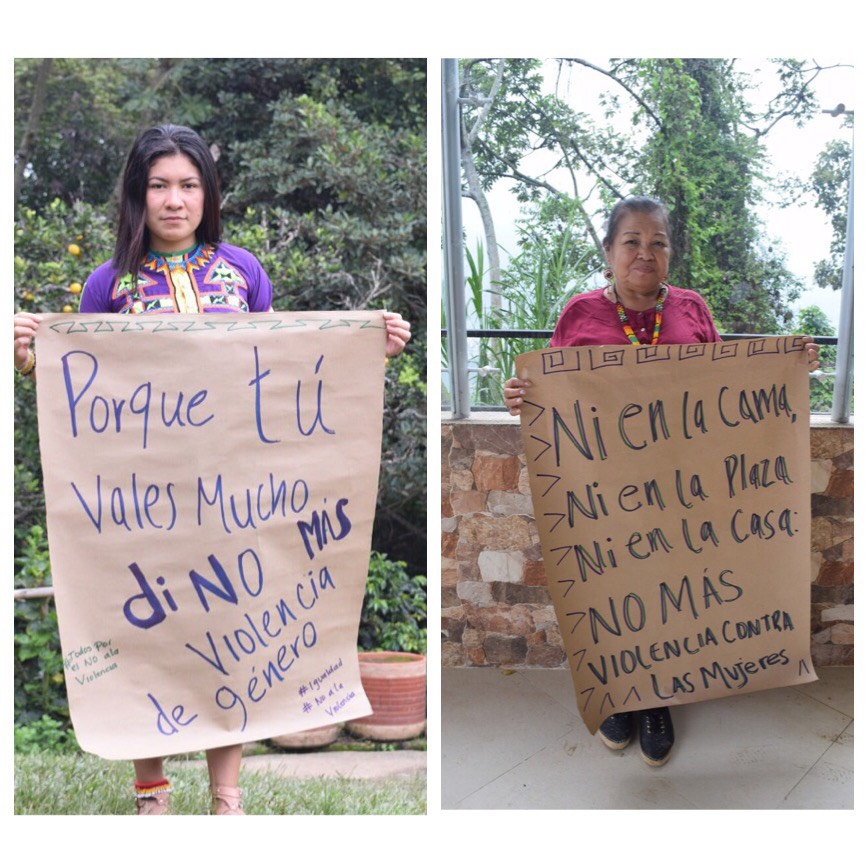 Porque tú
Vales Mucho
di NO MÁS
Violencia
de género
#Todos Por
el No a la
Violencia
#Igualdad
#No a la
Violencia
Ni en la Cama,
Ni en la Plaza
Ni en la Casa:
NO MÁS
VIOLENCIA CONTRA
Las Mujeres